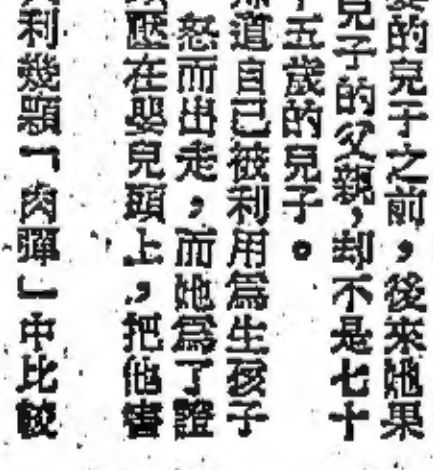 的兒子之前，後來她果
兒子的父親，却不是七十
五歲的兒子。
道自己被利用爲生孩子
怒而出走，而她爲了證
壓在嬰兒頭上，把他害
利幾顆「肉彈」中比較